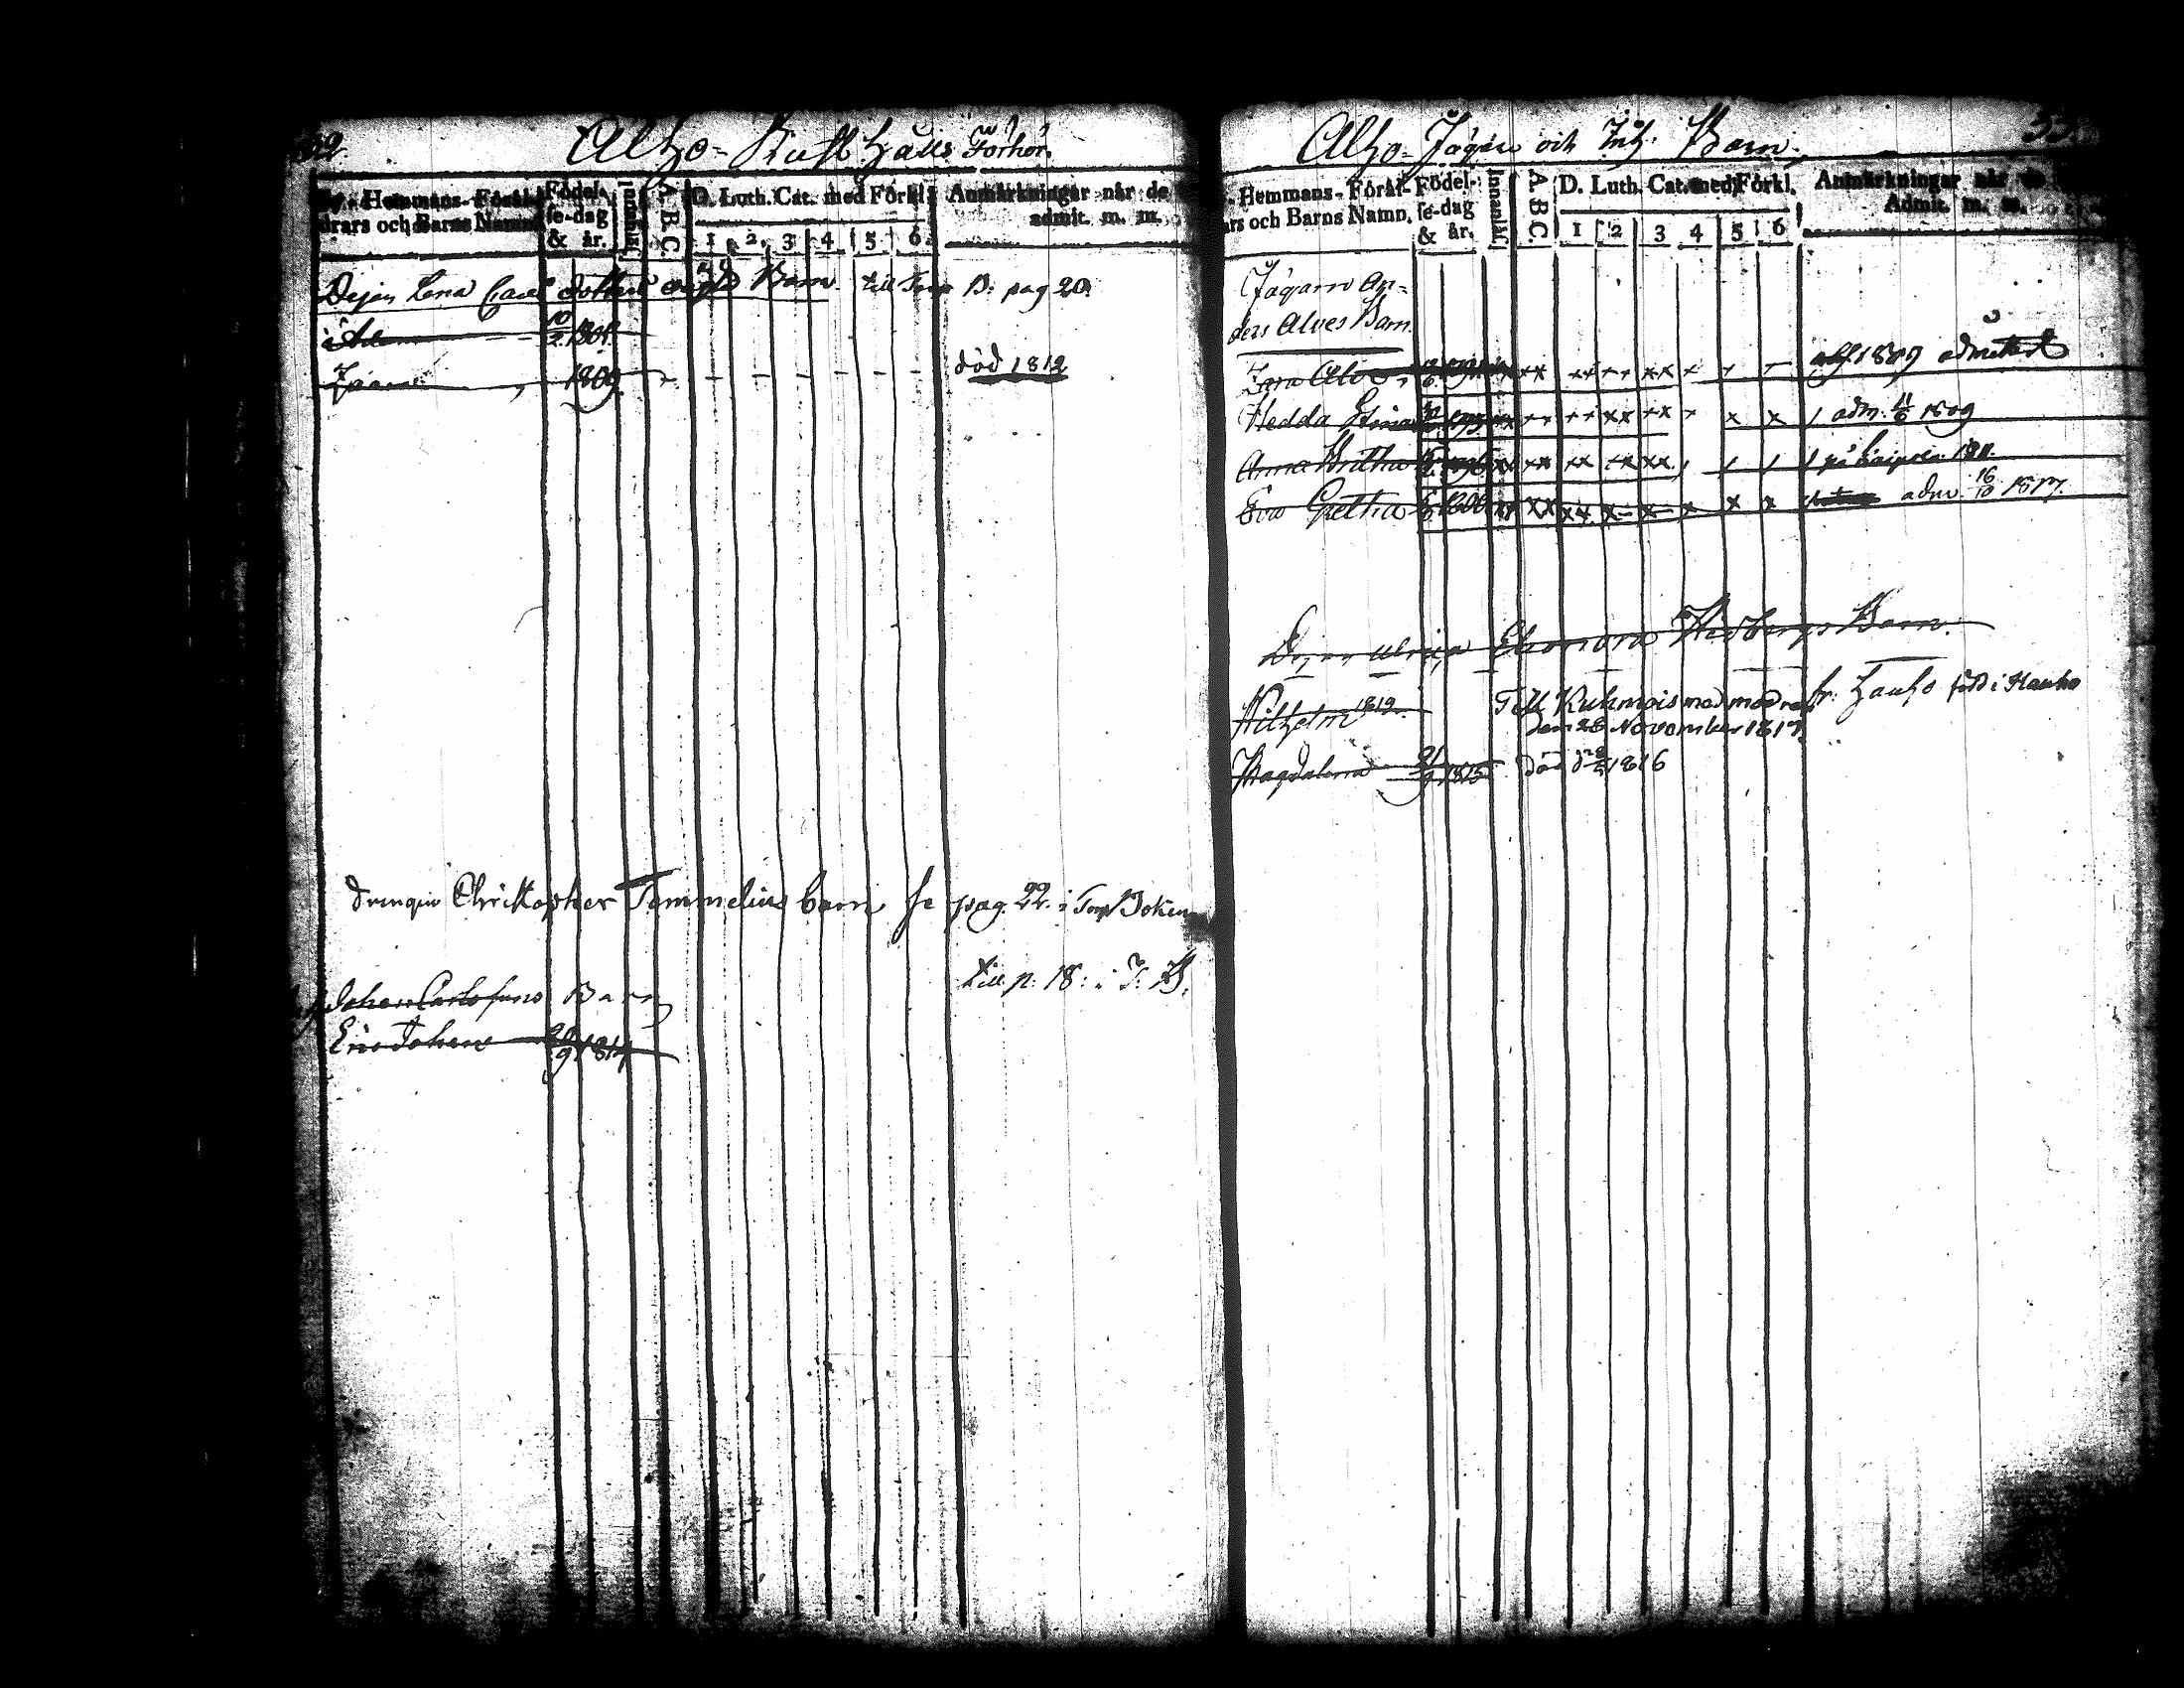 32.
Alho- Rusthålls Förhör.
Hemmans- Föräl-
drars och Barns Namn
Födel-
se-dag
& år.
Innanläsn.
A. B. C.
D. Luth. Cat. med Förkl.
1 2 3 4 5 6
Anmärkningar när de
admit. m. m.
Pejan Lena Carls dotters Barn till Torp B: pag 20.
10/2 1801.
1809 - - - - - - död 1812
drengin Christopher Tammelins barn se pag. 22. i Torp Boken
Johan Carlssons Barn till p. 18: i T. B.
Eric Johan 9 1814
Alho- Jägare och Inh. Barn.
33
Hemmans- Föräl-
ars och Barns Namn.
Födel-
se-dag
& år.
Innanläsn.
A. B. C.
D. Luth. Cat. med Förkl.
1 2 3 4 5 6
Anmärkningar när de
Admit. m. m.
Jägarn An-
ders Alves Barn.
1809 admitterd
Hedda Stina adm. 11/6 1809
Anna Britha 1811.
Eva Gretha 1800 adm. 16/10 1817.
Ulrica Eleonora Hedbergs Barn.
Wilhelm 1812. Till Kuhmois med modren fr. Lauho född i Hauho
den 28 November 1817.
Magdalena 21/9 1815 död 1816